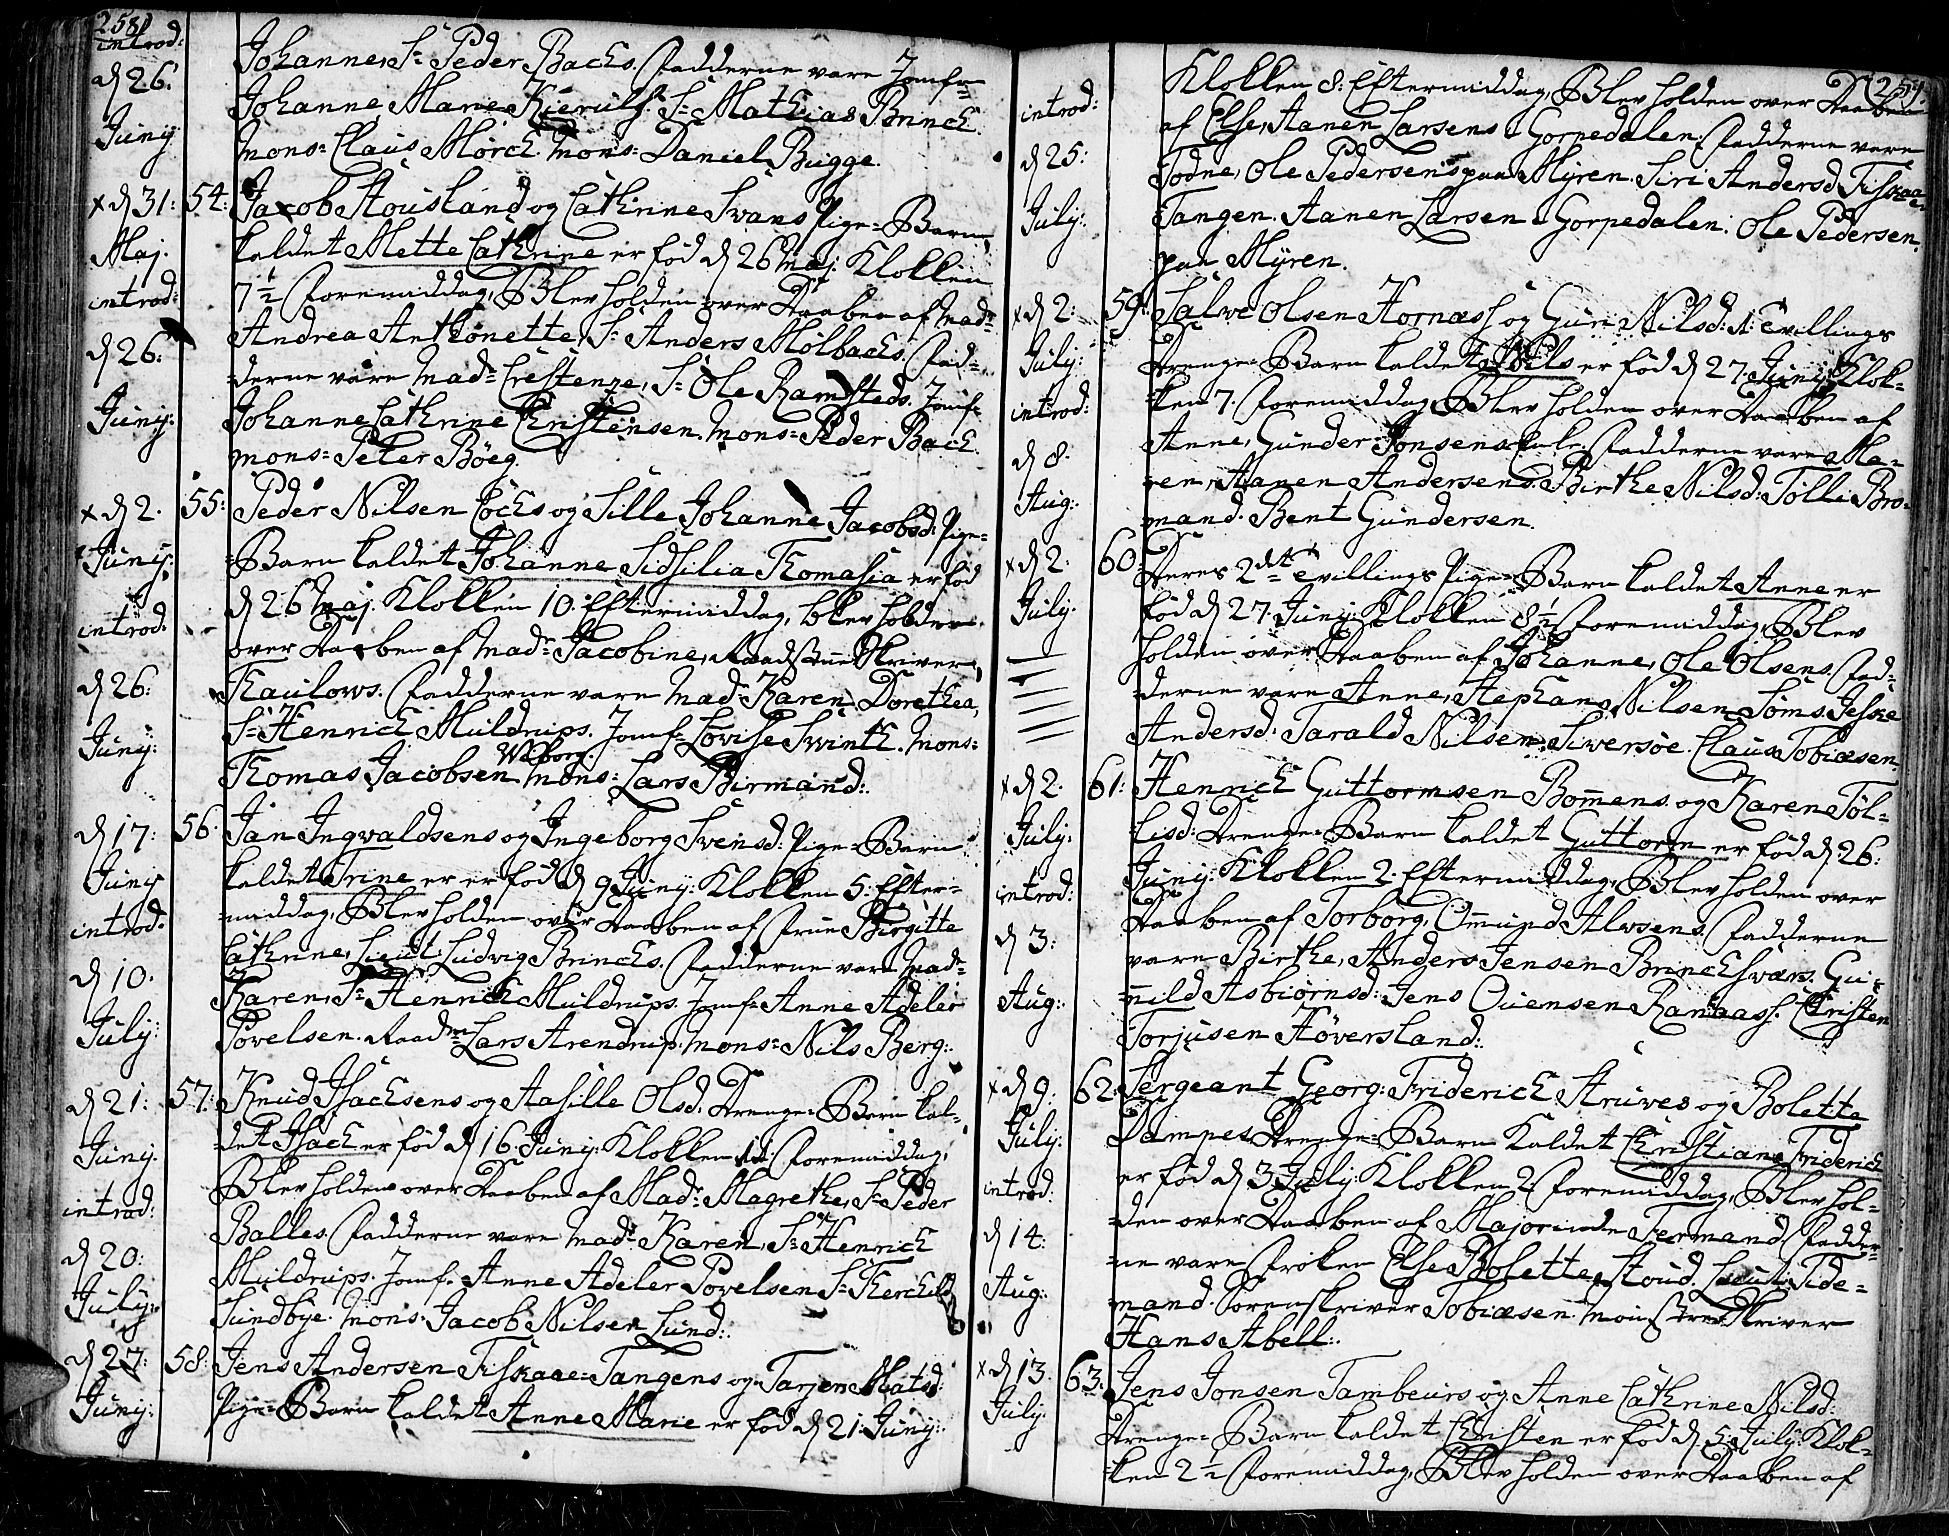 258
introd:
d 26:
Juny:
Johanne, Sr Peder Bachs. Fadderne vare Jomfr=
Johanne Marie Kierulf. Sr Mathias Brinch.
Mons= Claus Mörch. Mons= Daniel Bugge.
x d 31: 54:
Maj.
introd:
d 26:
Juny:
Jacob Housland og Cathrine Svans Pige=Barn,
kaldet Mette Cathrine er fod d 26 Maj. Klokken
7 1/2 Foremiddag, Blev holden over Daaben af Mad=
Andrea Anthonette, Sr Anders Molbachs. Fad=
=derne vare Mad= Crestenze, Sr Ole Ramsteds. Jomf=
Johanne Cathrine Christensen. Mons= Peder Bach.
Mons= Peter Böeg.
x d 2. 55:
Juny:
introd:
d 26:
Juny:
Peder Nilsen Cochs og Sille Johanne Jacobsd: Pige=
=Barn kaldet Johanne Sidsilia Thomasia er fod
d 26 Maj. Klokken 10. Eftermiddag, blev holden
over Daaben af Mad= Jacobine, Raadstueskriver,
Thaulows. Fadderne vare Mad= Karen Dorethea,
Sr Henrich Muldrups. Jomf= Lovise Swinth. Mons=
Wiborg.
Thomas Jacobsen Mons= Lars Birmand:
d 17: 56.
Juny
introd:
d 10.
July:
Jan Ingvaldsens og Ingeborg Svensd: Pige=Barn
kaldet Trine er er fod d 9 Juny: Klokken 5. Efter=
=middag, Blev holden over Daaben af Frue Birgitte
Cathrine, Lieut: Ludvig Brinchs. Fadderne vare Mad=
Karen, Sr Henrich Muldrups. Jomf= Anne Adeler
Povelsen. Raadm Lars Arendrup. Mons= Nils Berg:
d 21: 57:
Juny.
introd:
d 20:
July:
Knud Isachsens og Aasille Olsd: Drenge=Barn kal=
det Isach er fod d 16. Juny: Klokken 11. Foremiddag,
Blev holden over Daaben af Mad= Magrethe, Sr Peder
Balles. Fadderne vare Mad= Karen, Sr Henrich
Muldrups. Jomf= Anne Adeler Povelsen. Sr Therchild
Sundbye. Mons= Jacob Nilsen Lund:
d 27: 58:
Juny:
Jens Andersen Fiskaae=Tangens og Tarjer Matsd:
Pige=Barn kaldet Anne Marie er fod d 21. Juny:
259.
introd:
d 25:
July:
Klokken 8: Eftermiddag, Blev holden over Daaben
af Else, Aanen Larsens i Gorpedalen. Fadderne vare
Todne, Ole Pedersens paa Myren. Siri Andersd Fiskaae
Tangen. Aanen Larsen i Gorpedalen. Ole Pedersen
paa Myren.
x d 2: 59:
July:
introd:
d 8.
Aug:
Salve Olsen Hornæs og Guri Nilsd: 1t Tvillings
Drenge=Barn kaldet Nils er fod d 27. Juny: Klok=
=ken 7. Foremiddag, Blev holden over Daaben af
Anne, Gunder Jonsens. Fadderne vare Ma=
ren, Aanen Andersens. Birthe Nilsd: Tølli Bro=
mand. Bent Gundersen.
x d 2. 60:
July.
Deres 2det Tvillings Pige=Barn kaldet Anne er
fod d 27. Juny: Klokken 8 1/2 Foremiddag, Blev
holden over Daaben af Johanne, Ole Olsens. Fad=
=derne vare Anne, Stephan Nilsen Soms. Jeske
Andersd. Tarald Nilsen Siversøe. Claus Tobiæsen.
x d 2. 61:
July.
introd:
d 3:
Aug:
Henrich Guttormsen Bomens. og Karen Töl=
lisd: Drenge=Barn kaldet Guttorm er fod d 26.
Juny: Klokken 2. Eftermiddag, Blev holden over
Daaben af Torborg, Omund Alvsens. Fadderne
vare Birthe, Anders Jensen Brinchsværs. Gu=
=nild Asbiornsd: Jens Ouensen Randaas. Christen
Torjusen Höversland:
x d 9: 62:
July:
introd:
d 14:
Aug:
Sergeant Georg: Friderich Struves og Bolette
Dampes Drenge=Barn kaldet Christian Friderich
er fod d 3 July: Klokken 2. Foremiddag, Blev hol=
=den over Daaben af Majorinde Fermand. Fadder=
=ne vare Froken Else Bolette Stoud. Lieut: Tide=
mand. Sorenskriver Tobiæsen. Mönsterskriver
Hans Abell:
x d 13. 63:
July:
Jens Jonsen Tambeurs og Anne Cathrine Nilsd:
Drenge=Barn kaldet Christen er fod d 5. July: Klok=
=ken 2 1/2 Foremiddag, Blev holden over Daaben af